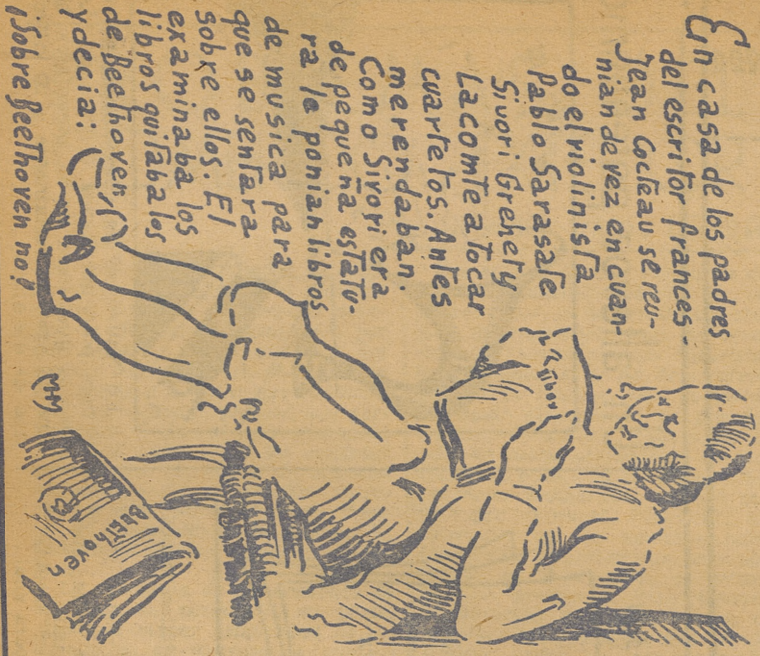 En casa de los padres
del escritor frances-
Jean Cocteau se reu-
nian de vez en cuan-
do el violinista
Pablo Sarasate
Sivori Grehety
Lacomte a tocar
cuartetos. Antes
merendaban.
Como Sivori era
de pequeña estatu-
ra le ponian libros
de musica para
que se sentara
sobre ellos. El
examinaba los
libros quitaba los
de Beethoven
y decia:
¡Sobre Beethoven no!
BEEThoven